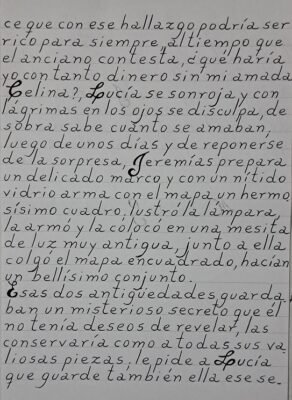 ce que con ese hallazgo podría ser
rico para siempre, al tiempo que
el anciano contesta, ¿qué haría
yo con tanto dinero sin mi amada
Celina?, Lucía se sonroja y con
lágrimas en los ojos se disculpa, de
sobra sabe cuánto se amaban,
luego de unos días y de reponerse
de la sorpresa, Jeremías prepara
un delicado marco y con un nítido
vidrio arma con el mapa un hermo
sísimo cuadro, lustró la lámpara,
la armó y la colocó en una mesita
de luz muy antigua, junto a ella
colgó el mapa encuadrado, hacían
un bellísimo conjunto.
Esas dos antigüedades guarda
ban un misterioso secreto que él
no tenía deseos de revelar, las
conservaría como a todas sus va
liosas piezas, le pide a Lucía
que guarde también ella ese se-